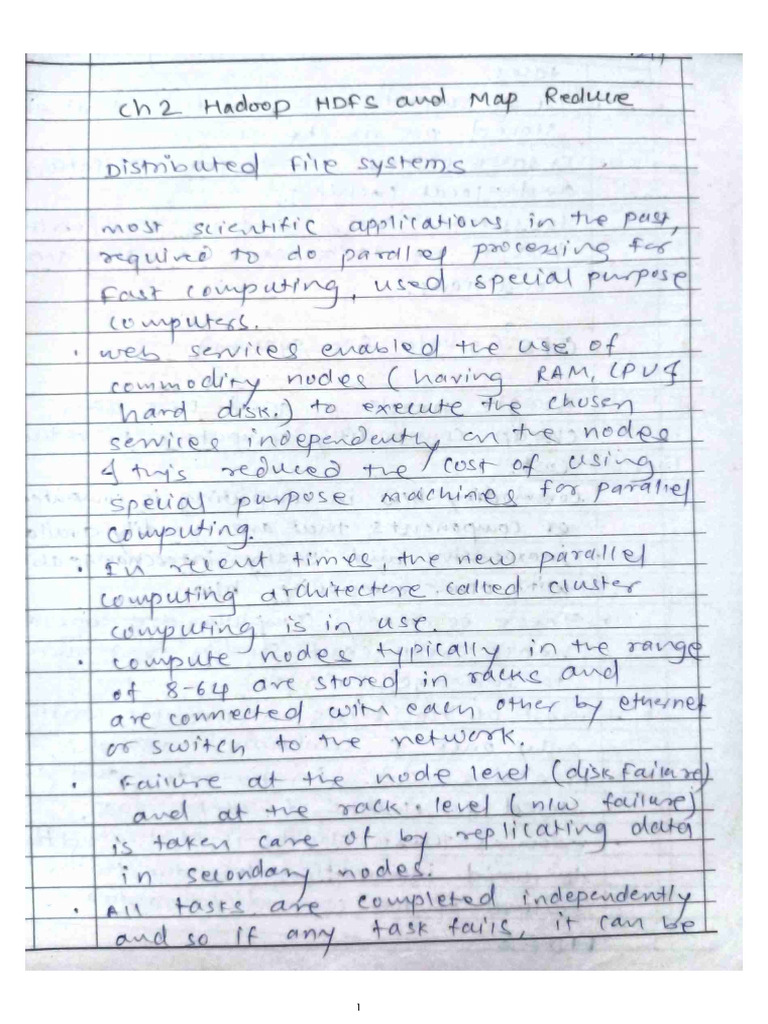 Ch 2 Hadoop HDFS and Map Reduce
Distributed File Systems
most scientific applications in the past,
required to do parallel processing for
fast computing, used special purpose
computers.
. web services enabled the use of
commodity nodes (having RAM, CPU &
hard disk.) to execute the chosen
services independently on the nodes
& this reduced the cost of using
special purpose machines for parallel
computing.
. In recent times, the new parallel
computing architecture called cluster
computing is in use.
. compute nodes typically in the range
of 8-64 are stored in racks and
are connected with each other by ethernet
or switch to the network.
. Failure at the node level (disk failure)
and at the rack level (n/w failure)
is taken care of by replicating data
in secondary nodes.
. All tasks are completed independently
and so if any task fails, it can be
1